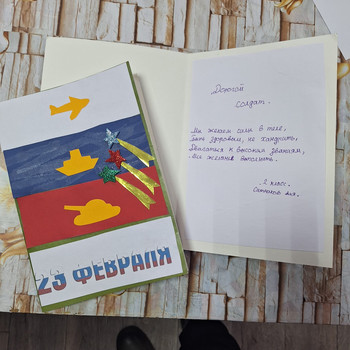 23 ФЕВРАЛЯ
Дорогой
солдат.
Мы желаем силы в теле,
Быть здоровым, не хандрить,
Двигаться к высоким званиям,
Все желания исполнить.
2 класс.